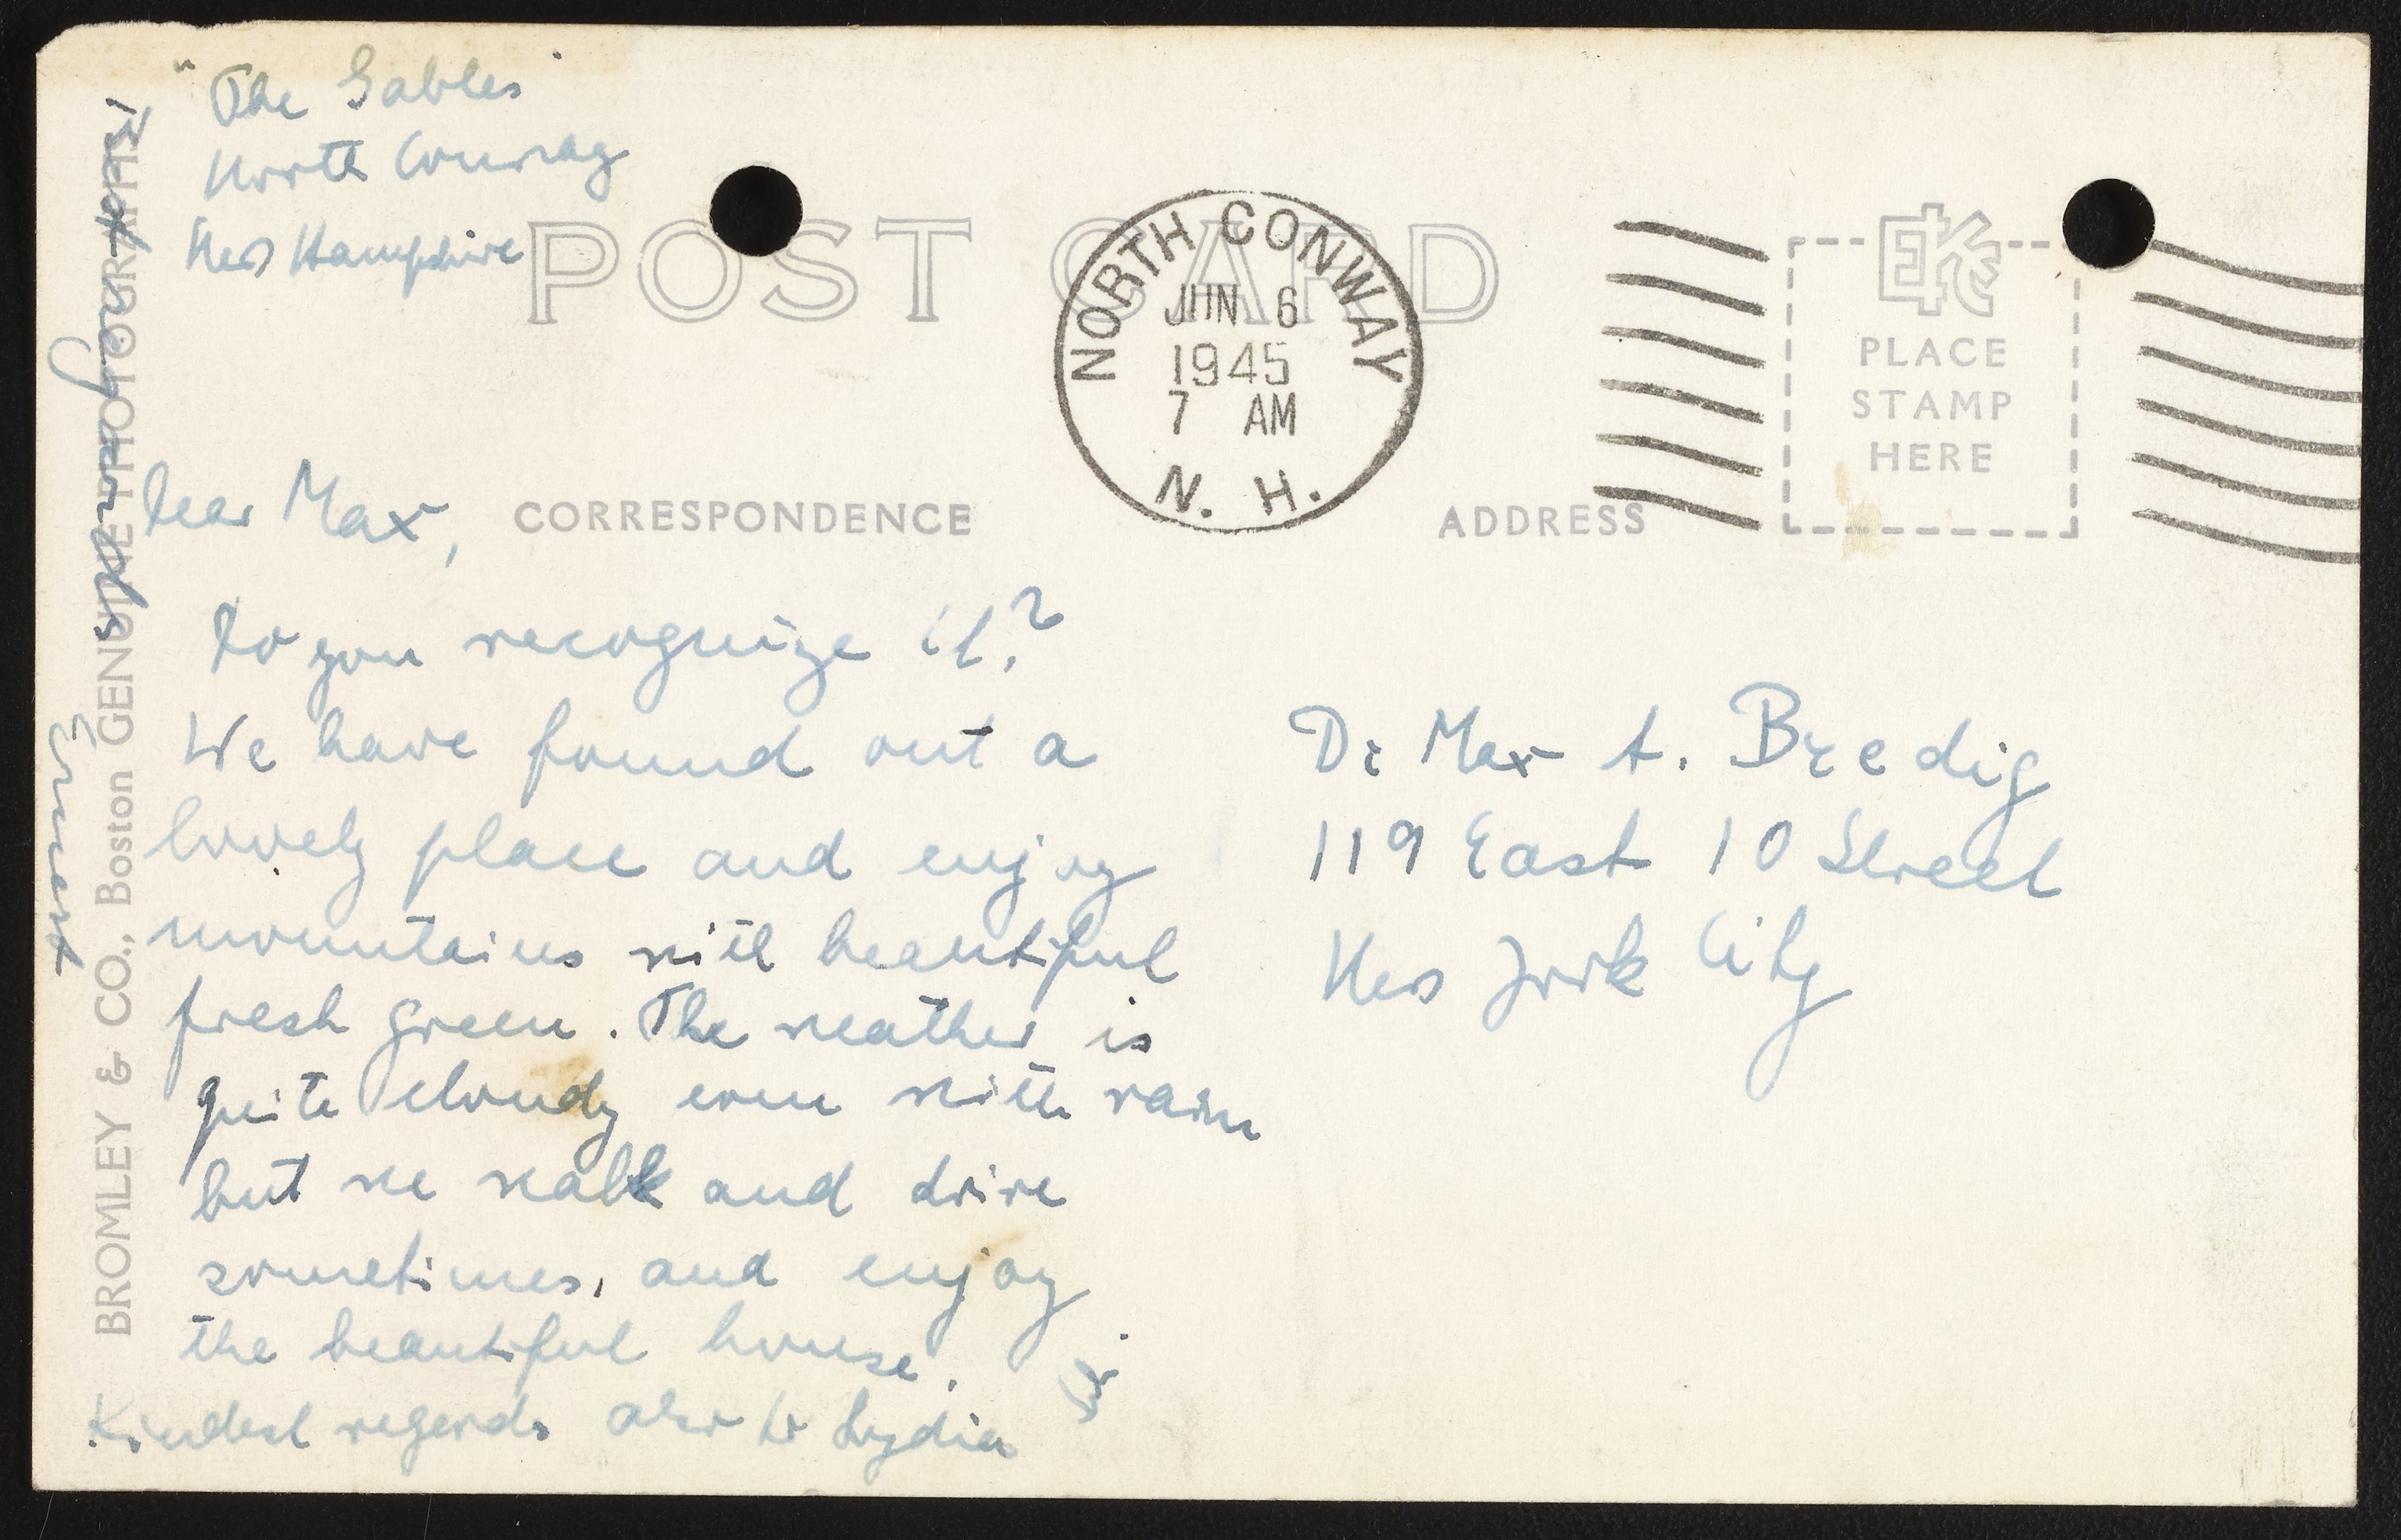 "The Gables"
North Conway
New Hampshire
POST CARD
NORTH CONWAY
JUN 6
1945
7 AM
N. H.
EKC
PLACE
STAMP
HERE
CORRESPONDENCE
ADDRESS
Dear Max,
Do you recognize it?
We have found out a
lovely place and enjoy
mountains with beautiful
fresh green. The weather is
quite cloudy even with rain
but we walk and drive
sometimes, and enjoy
the beautiful house.
Kindest regards also to Lydia
Ernest
Dr Max A. Bredig
119 East 10 Street
New York City
BROMLEY & CO., Boston GENUINE PHOTOGRAPHS